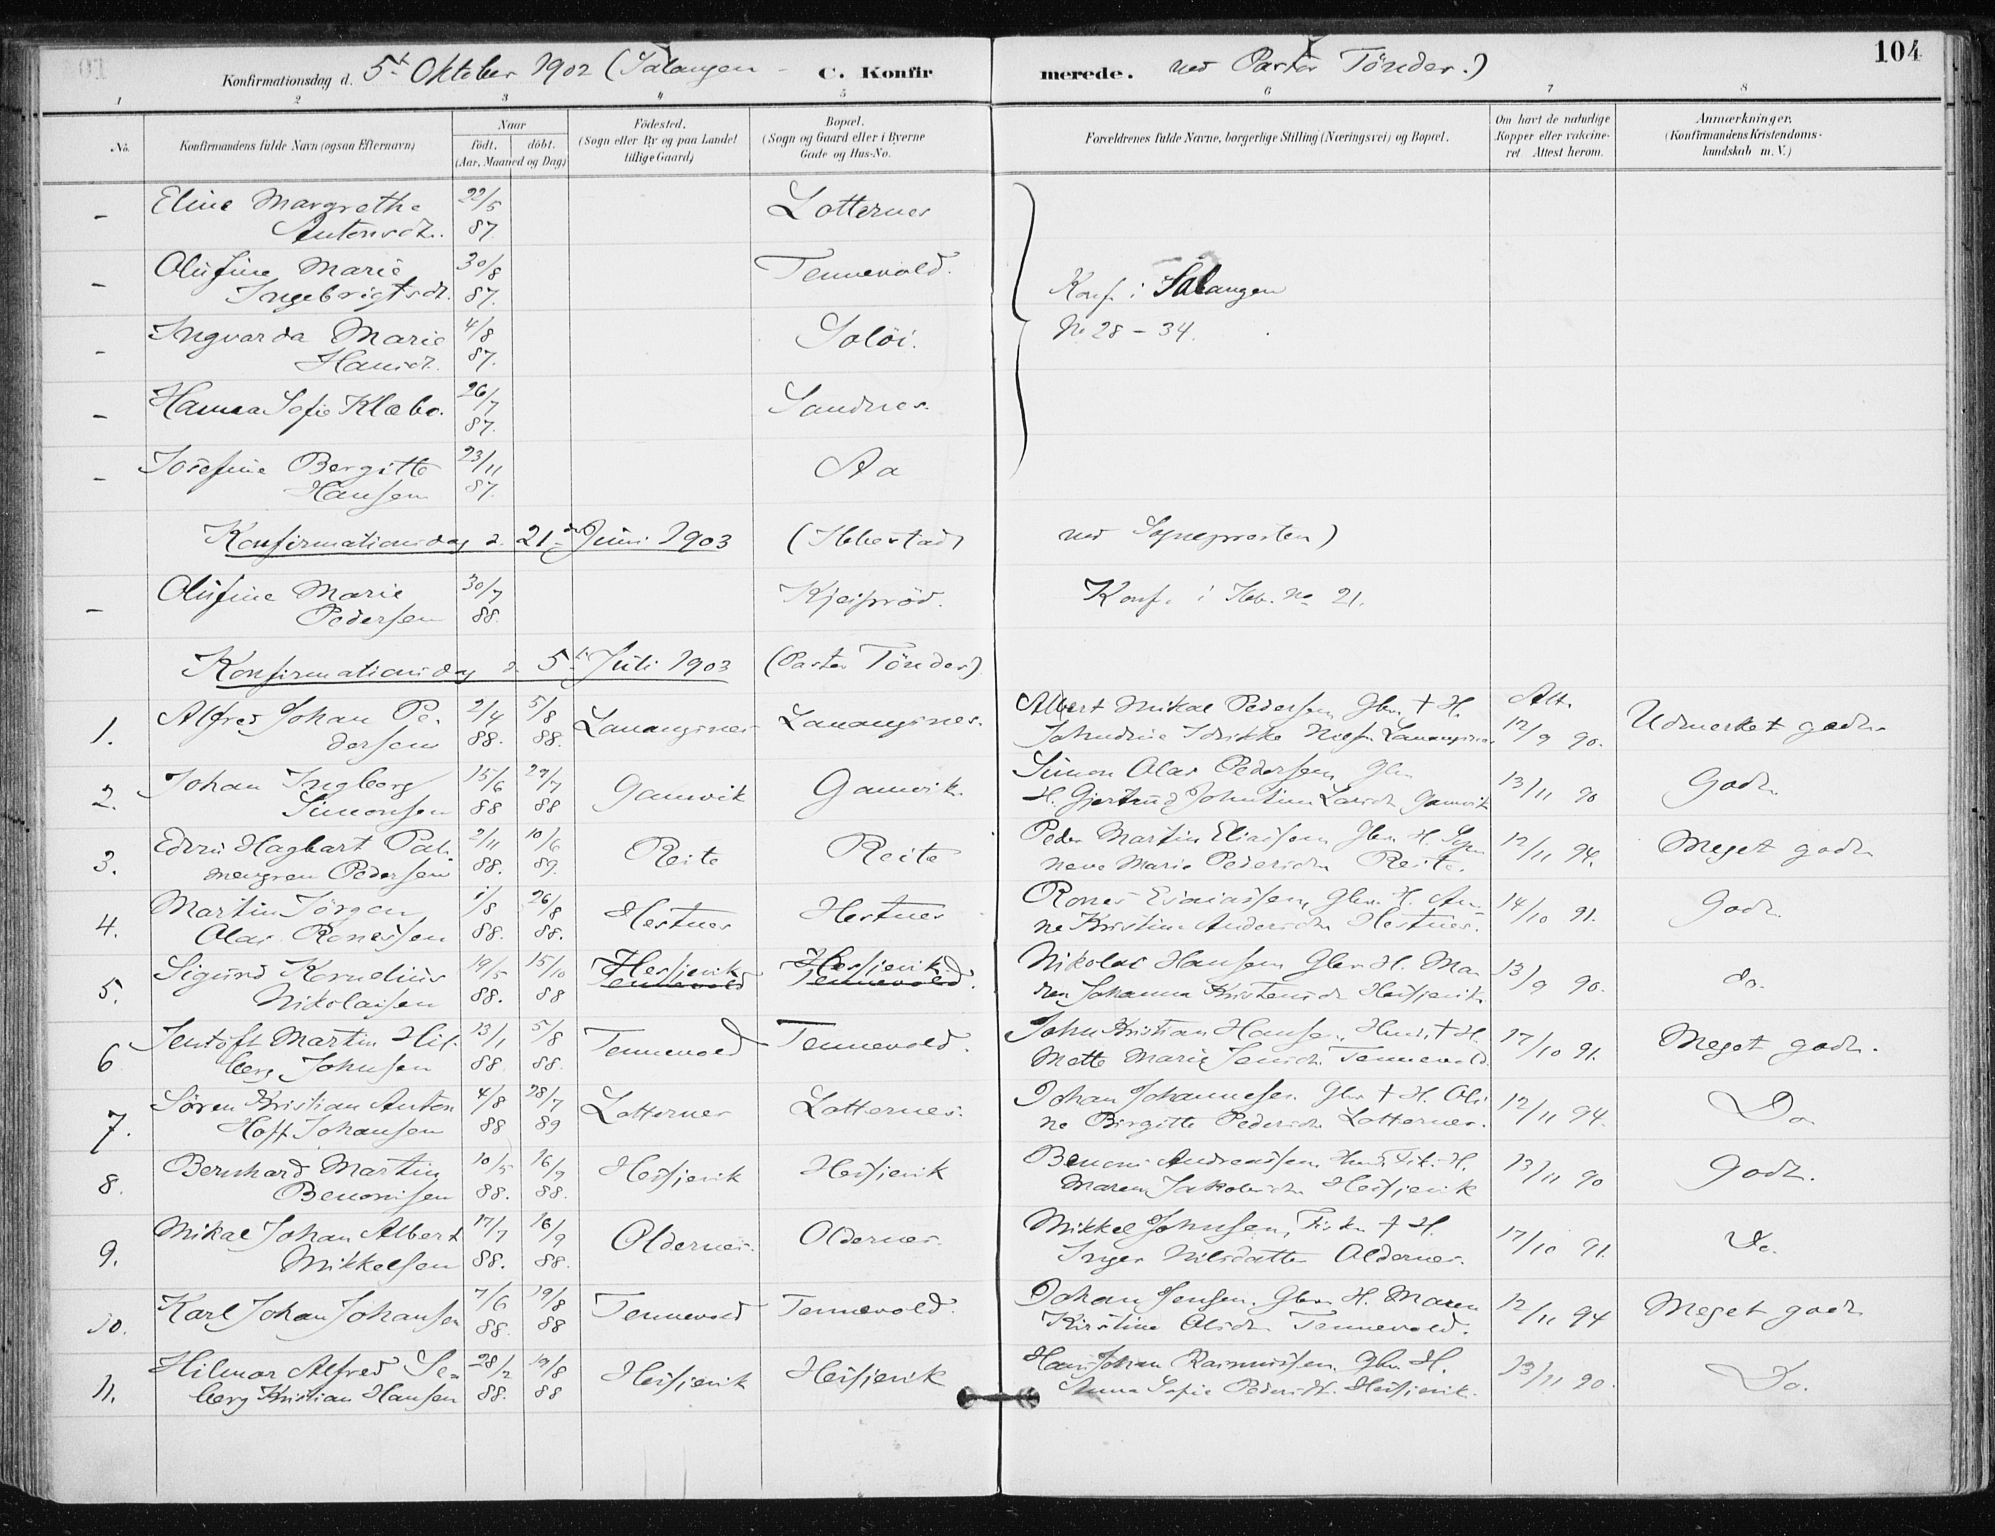 104
Konfirmationsdag d. 5te Oktober 1902 (Salangen - C. Konfirmerede. ved Pastor Tönder.)
1 2 3 4 5 6 7 8
No.
Konfirmandens fulde Navn (ogsaa Efternavn)
Naar
födt. döbt.
(Aar, Maaned og Dag)
Födested.
(Sogn eller By og paa Landet
tillige Gaard)
Bopæl.
(Sogn og Gaard eller i Byerne
Gade og Hus-No.
Forældrenes fulde Navne, borgerlige Stilling (Næringsvei) og Bopæl.
Om havt de naturlige
Kopper eller vakcine-
ret Attest herom.
Anmærkninger.
(Konfirmandens Kristendoms-
kundskab m. V.)
- Eline Margrethe 22/5 Lotternes
Antonsdt. 87
- Olufine Marie 30/8 Tennevold.
Ingebrigtsdt. 87.
Konf. i Salangen
- Ingvarda Marie 4/8 Solöi.
No 28 - 34.
Hansdt. 87.
- Hanna Sofie Klæbo. 26/7 Sandnes.
87.
- Josefine Bergitte 23/11 Aa
Hansen 87.
Konfirmationsdag d. 21de Juni 1903 (Ibbestad ved Sognepresten)
- Olufine Marie 30/7 Kjeipröd. Konf. i Ibb. No 21.
Pedersen 88.
Konfirmationsdag d. 5te Juli 1903 (Pastor Tönder)
1. Alfred Johan Pe- 2/4 5/8 Lavangsnes Lavangsnes. Albert Mikal Pedersen, Gbr. + H. Att. Udmerket godt.
dersen 88. 88. Nielsn Lavangsnes 12/9 90.
2. Johan Ingberg 15/6 29/7 Gamvik Gamvik. Simon Olai Pedersen, Gbr. 13/11 90 Godt.
Simonsen 88 88 H. Gjertrud Larsdt. Gamvik
3. Hagbart Pal- 2/11 10/6 Reite Reite Peder Martin Eliassen, Gbr. H. 12/11 94. Meget godt
mengren Pedersen 88. 89. Marie Pedersdtr Reite.
4. Martin Jörgen 1/8 26/8 Hestnes Hestnes Rones Esaiassen, Gbr. H. An- 14/10 91. Godt.
Olai Ronessen 88. 88. ne Kristine Andersdtr Hestnes.
5. Sigurd Kornelius 19/5 15/10 Hesjevik Hesjevik. Nikolai Hansen Gbr. H. Ma- 13/9 90. do.
Nikolaisen 88. 88 Tennevold Tennevold. ren Johanna Kristensdt Hesjevik.
6 Jentoft Martin Hil- 13/1 5/8 Tennevold Tennevold. John Kristian Hansen, Husm. + H. 17/10 91. Meget godt.
berg Johnsen 88. 88. Mette Marie Jensdt. Tennevold
7. Sören Kristian Anton 4/8 28/7 Lotternes Lotternes. Johan Johannesen Gbr. + H. Oli- 12/11 94. Do
Hoff Johansen 88 89 ne Birgitte Pedersdtr Lotternes.
8. Bernhard Martin 10/5 16/9 Hesjevik Hesjevik Benoni Andreassen, Husm. Fisk. H. 13/11 90 Godt.
Benonisen 88. 88. Maren Jakobsdtr Hesjevik
9. Mikal Johan Albert 17/7 16/9 Oldernes. Oldernes. Mikkel Johnsen, Fisker + H. 17/10 91. Do.
Mikkelsen 88. 88. Inger Nilsdatter Oldernes.
10. Karl Johan Johansen 7/6 19/8 Tennevold Tennevold. Johan Jensen. Gbr. H. Maren 12/11 94 Meget godt
88. 88 Kirstine Olsdtr Tennevold.
11. Hilmar Alfred Se- 28/2 19/8 Hesjevik Hesjevik Hans Johan Rasmussen, Gbr. H. 13/11 90. Do.
berg Kristian Hansen 88. 88 Anna Sofie Pedersdt. Hesjevik.